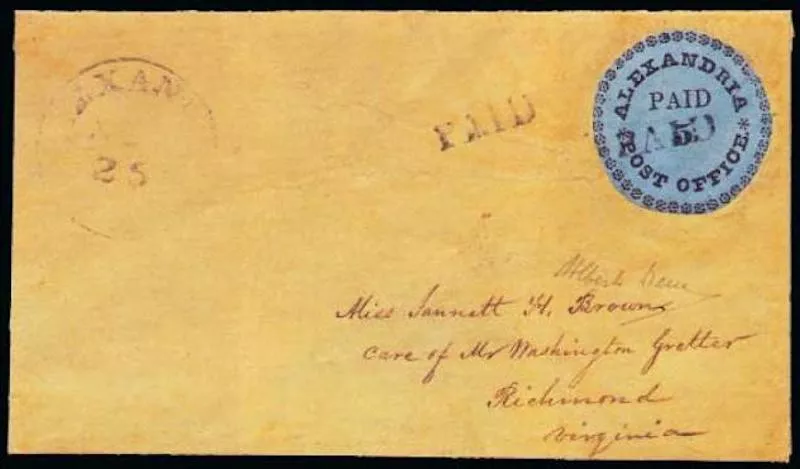 EXAN
25
PAID
ALEXANDRIA
PAID
PAID
5
* POST OFFICE *
Miss Jannett H. Brown
care of Mr Washington Gretter
Richmond
Virginia